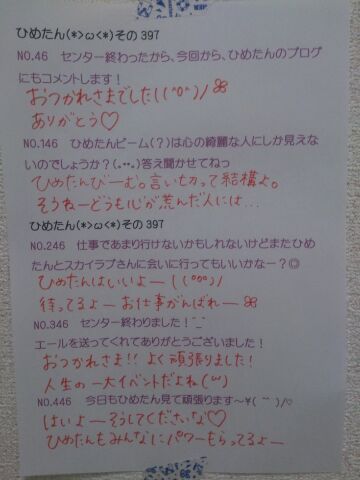 ひめたん(*>ω<*)その397
NO.46 センター終わったから、今回から、ひめたんのブログ
にもコメントします!
おつかれさまでした!(^o^)/
ありがとう♡
NO.146 ひめたんビーム(?)は心の綺麗な人にしか見えな
いのでしょうか?(。・・。)答え聞かせてねっ
ひめたんびーむ。言い切って結構よ。
そうねーどうも心が荒んだ人には…
ひめたん(*>ω<*)その397
NO.246 仕事であまり行けないかもしれないけどまたひめ
たんとスカイラブさんに会いに行ってもいいかなー?◎
ひめたんはいいよー!(^o^)/
待ってるよーお仕事がんばれー
NO.346 センター終わりました!^_^
エールを送ってくれてありがとうございました!
おつかれさま!!よく頑張りました!
人生の一大イベントだよね(ω)
NO.446 今日もひめたん見て頑張ります〜¥( ˘ ˘ )/♡
はいよーそうしてくださいな♡
ひめたんもみんなにパワーもらってるよー